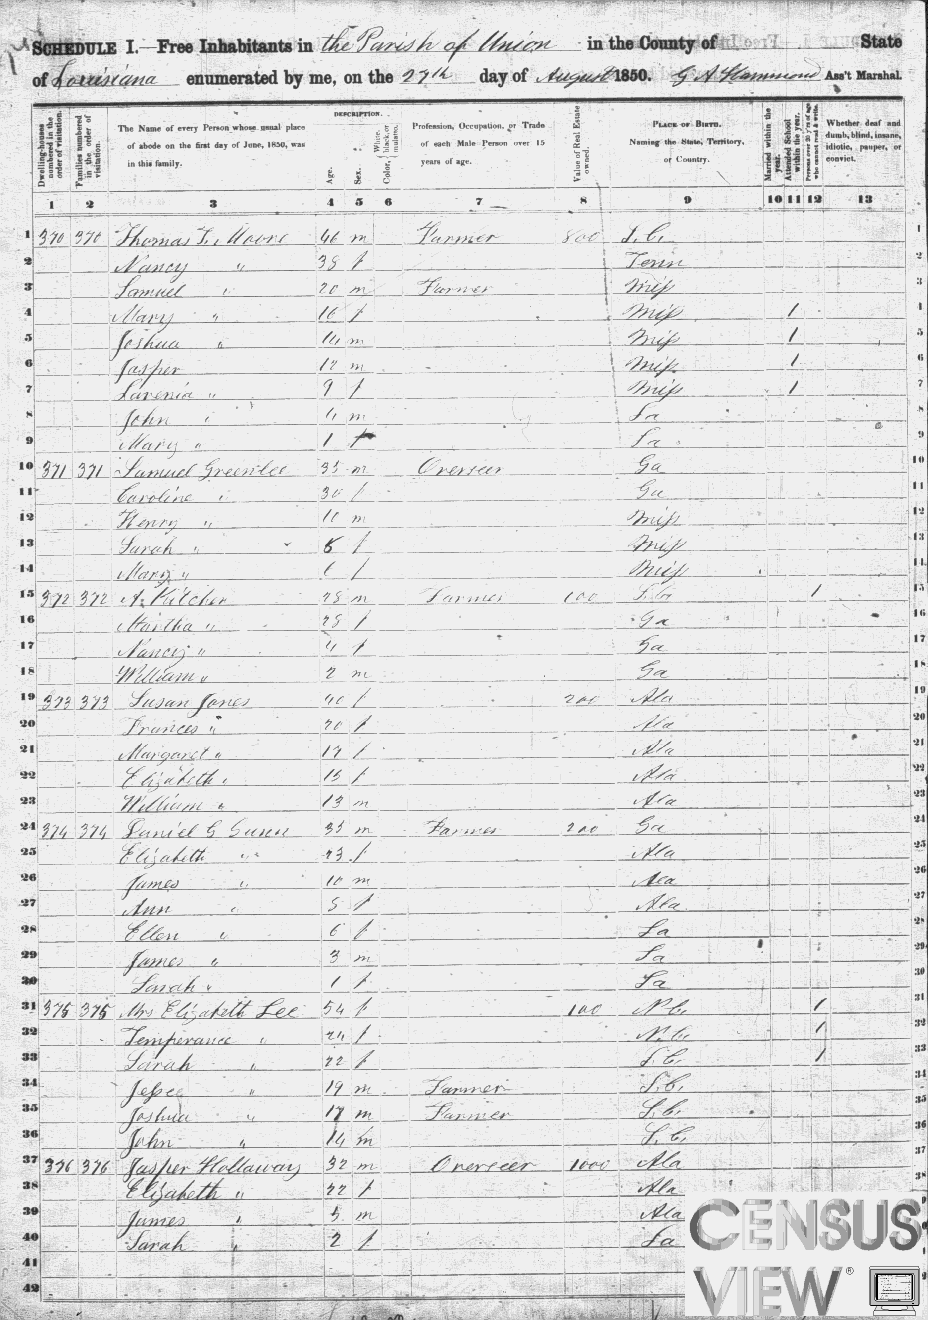 SCHEDULE I.—Free Inhabitants in the Parish of Union in the County of State
of Louisiana enumerated by me, on the 27th day of August 1850. G A Hammond Ass't Marshal.
Dwelling-houses numbered in the order of visitation.
Families numbered in the order of visitation.
The Name of every Person whose usual place of abode on the first day of June, 1850, was in this family.
DESCRIPTION.
Age.
Sex.
Color, White, black, or mulatto.
Profession, Occupation, or Trade of each Male Person over 15 years of age.
Value of Real Estate owned.
PLACE OF BIRTH. Naming the State, Territory, or Country.
Married within the year.
Attended School within the year.
Persons over 20 y'rs of age who cannot read & write.
Whether deaf and dumb, blind, insane, idiotic, pauper, or convict.
1 2 3 4 5 6 7 8 9 10 11 12 13
1 370 370 Thomas L. Moore 46 m Farmer 800 S.C. 1
2 Nancy " 38 f Tenn 2
3 Samuel " 20 m Farmer Miss 3
4 Mary " 16 f Miss 1 4
5 Joshua " 14 m Miss 1 5
6 Jasper 12 m Miss 1 6
7 Lavenia " 9 f Miss 1 7
8 John " 4 m La 8
9 Mary " 1 f La 9
10 371 371 Samuel Greenlee 35 m Overseer Ga 10
11 Caroline " 30 f Ga 11
12 Henry " 10 m Miss 12
13 Sarah " 8 f Miss 13
14 Mary " f Miss 14
15 372 372 A. 28 m Farmer 100 1 15
16 Martha " 28 f Ga 16
17 Nancy " 4 f Ga 17
18 William " 2 m Ga 18
19 373 373 Susan Jones 40 f 200 Ala 19
20 Frances " 20 f Ala 20
21 Margaret " 17 f Ala 21
22 Elizabeth " 15 f Ala 22
23 William " 13 m Ala 23
24 374 374 Daniel G 35 m Farmer 200 Ga 24
25 Elizabeth " 23 f Ala 25
26 James " 10 m Ala 26
27 Ann " 8 f Ala 27
28 Ellen " 6 f La 28
29 James " 3 m La 29
30 Sarah " 1 f La 30
31 375 375 Mrs Elizabeth Lee 54 f 100 N.C. 1 31
32 Temperance " 24 f N.C. 1 32
33 Sarah " 22 f S.C. 1 33
34 Jessee " 19 m Farmer S.C. 34
35 Joshua " 17 m Farmer S.C. 35
36 John " 14 m S.C. 36
37 376 376 Jasper Hollaway 32 m Overseer 1000 Ala
38 Elizabeth " 22 f Ala 38
39 James " 5 m Ala
40 Sarah " 2 f La
41
42
CENSUS
VIEW®